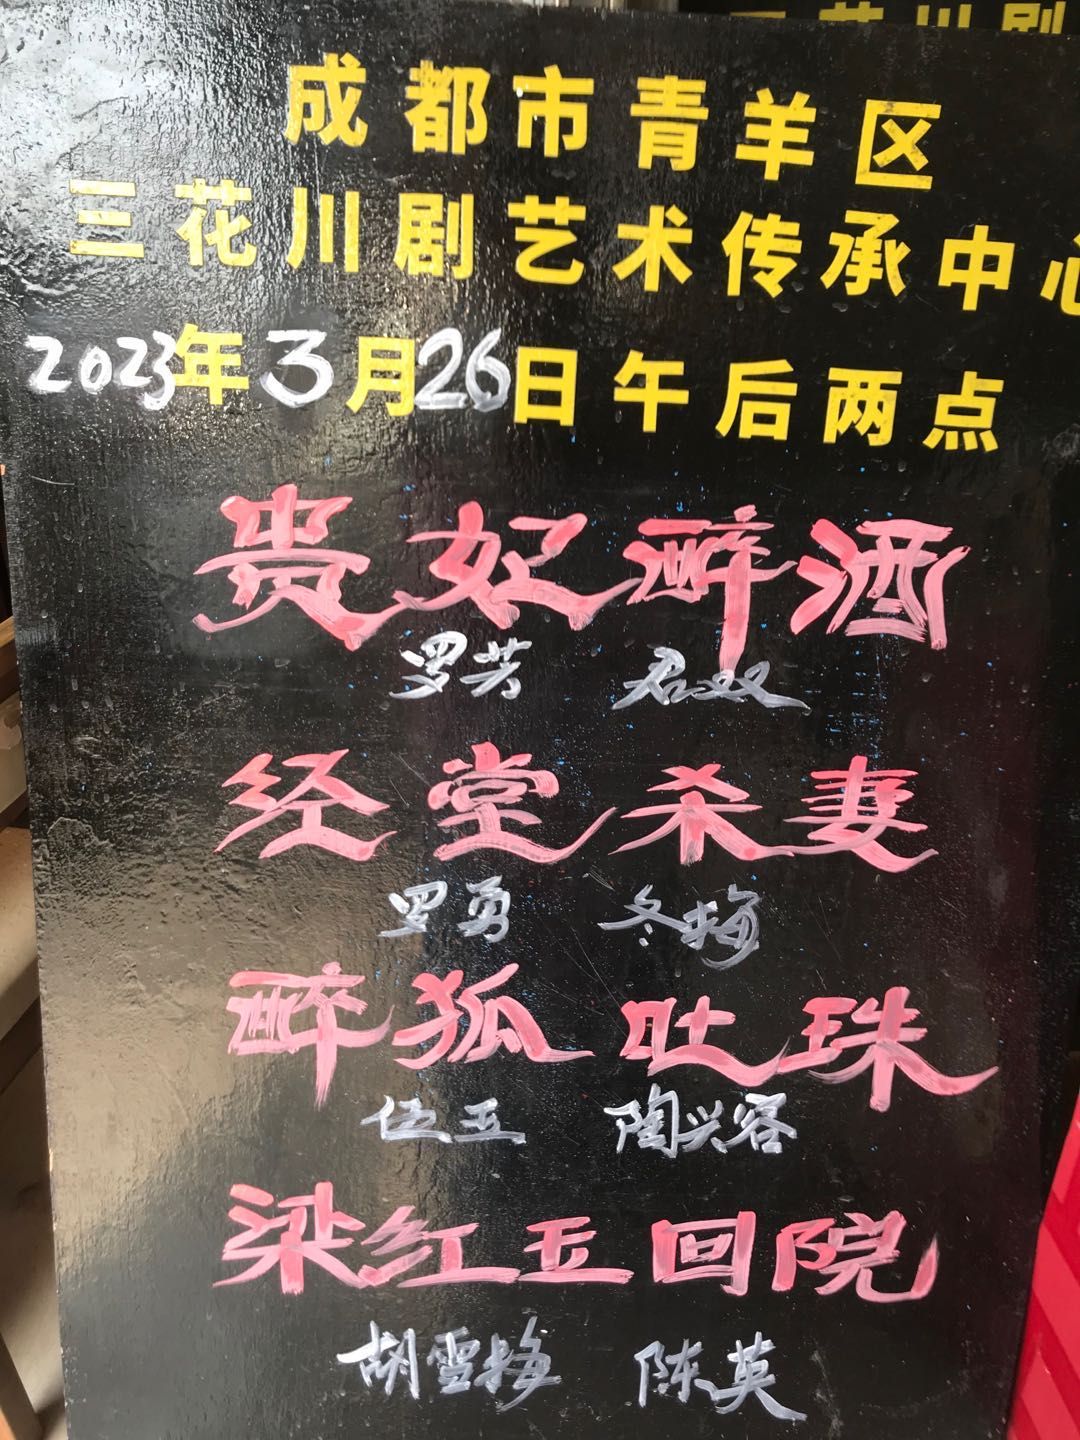 三花川剧
成都市青羊区
三花川剧艺术传承中心
2023年3月26日午后两点
贵妃醉酒
罗芳 君双
经堂杀妻
罗勇 冬梅
醉狐吐珠
伍玉 陶兴容
梁红玉回院
胡雪梅 陈英